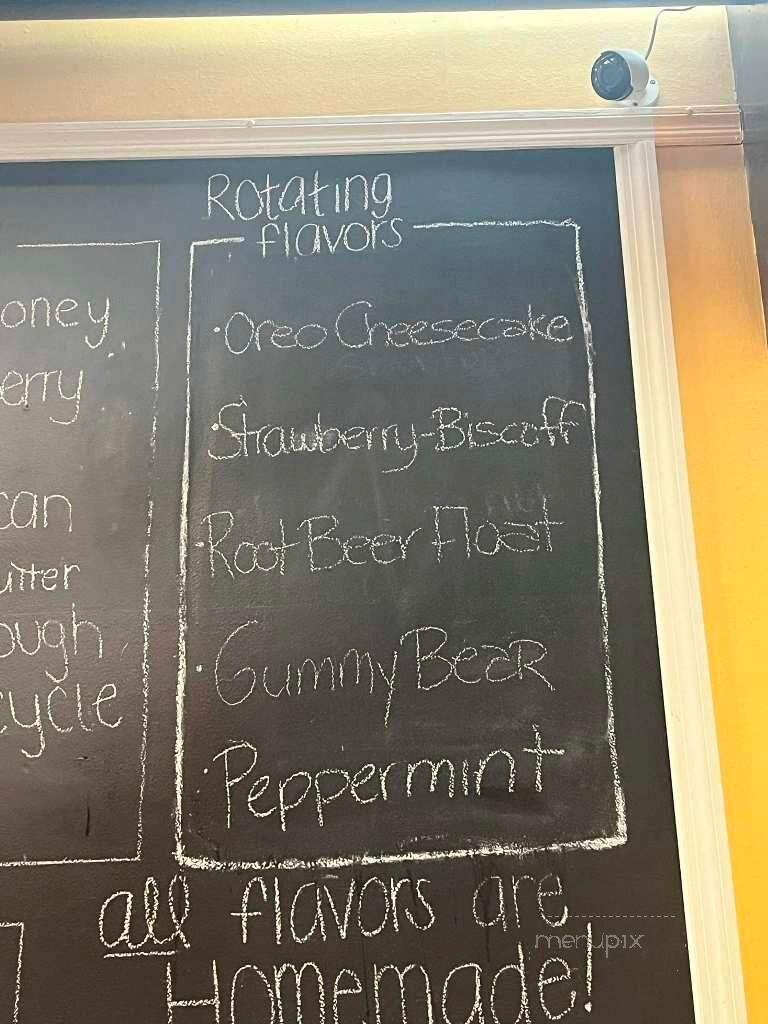 Rotating
flavors
· Oreo Cheesecake
· Strawberry-Biscoff
· Root Beer Float
· Gummy Bear
· Peppermint
oney
erry
can
utter
ough
cycle
all flavors are
Homemade!
menupix